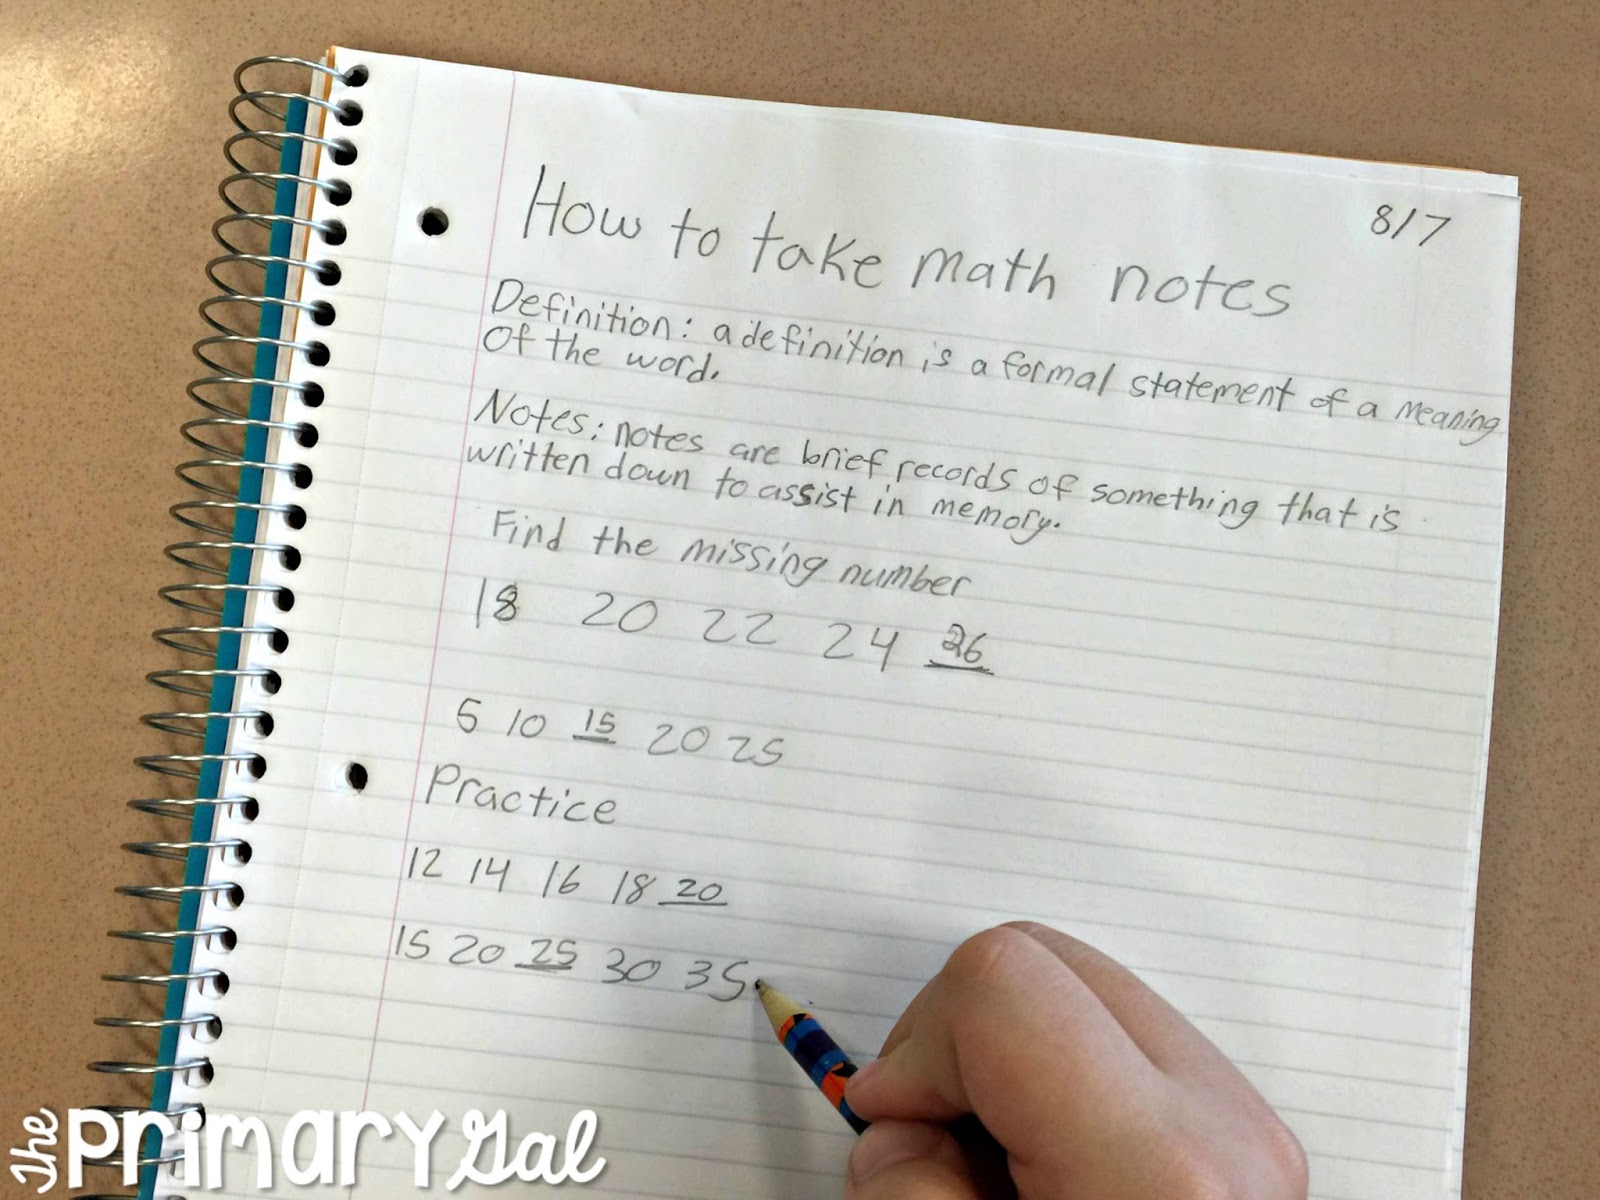 8/7
How to take math notes
Definition: a definition is a formal statement of a meaning
Of the word.
Notes: notes are brief records of something that is
written down to assist in memory.
Find the missing number
18 20 22 24 26
5 10 15 20 25
Practice
12 14 16 18 20
15 20 25 30 35
The PRIMARY Gal